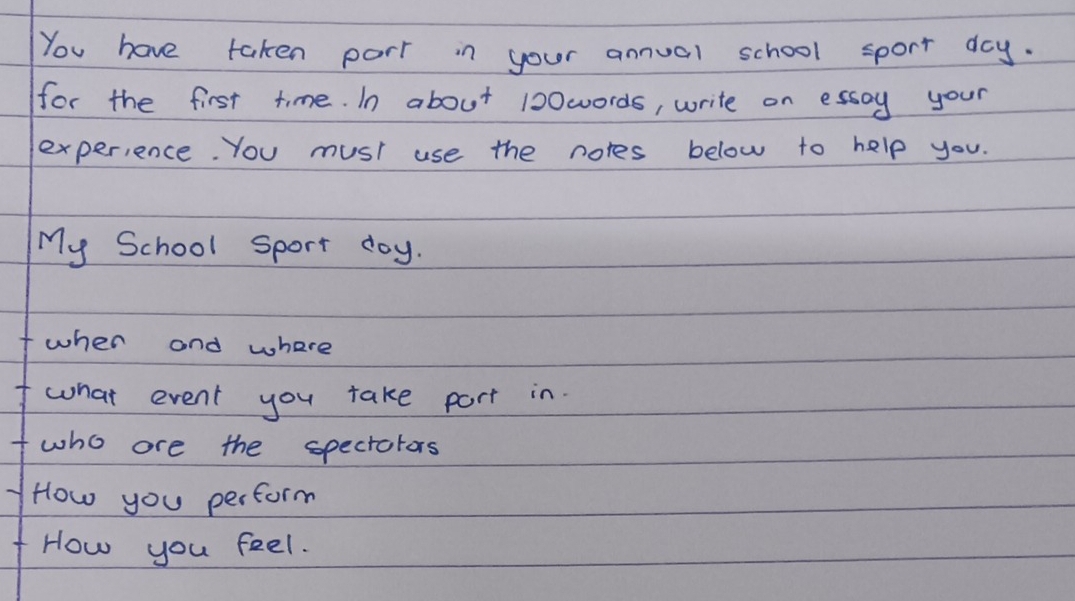 You have taken part in your annual school sport day.
for the first time. In about 120words, write an essay your
experience. You must use the notes below to help you.
My School Sport day.
- when and where
- what event you take part in.
- who are the spectators
- How you perform
- How you feel.